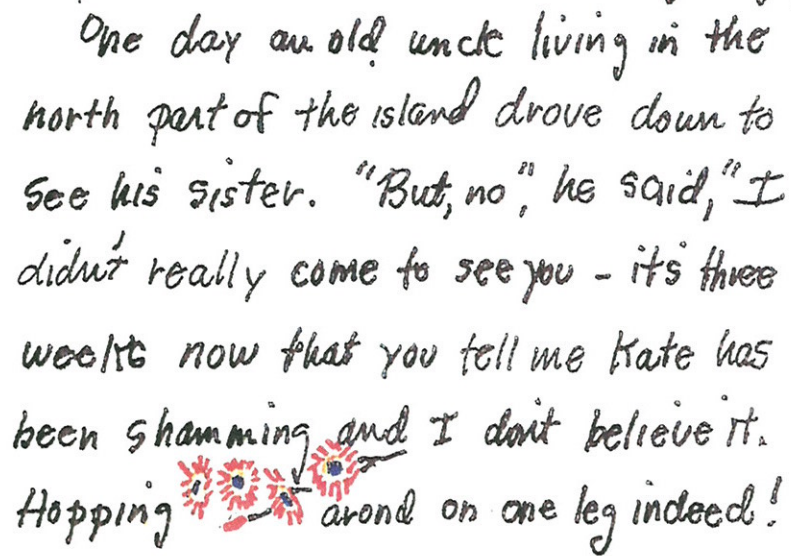 One day an old uncle living in the
north part of the island drove down to
see his sister. "But, no", he said, "I
didn't really come to see you - it's three
weeks now that you tell me Kate has
been shamming and I don't believe it.
Hopping arond on one leg indeed!